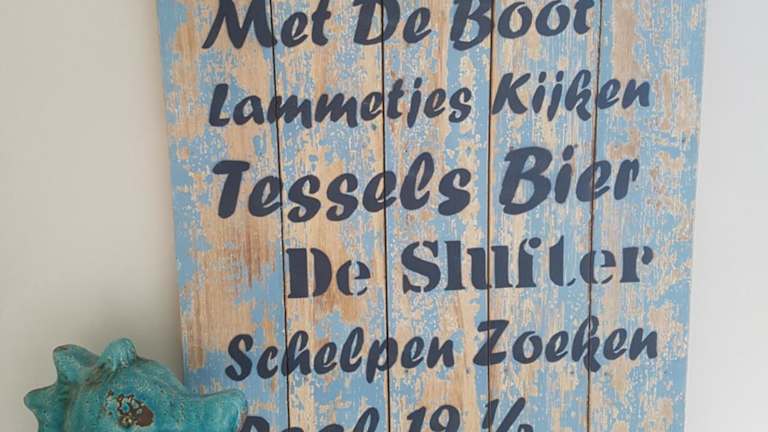 Met De Boot
Lammetjes Kijken
Tessels Bier
De Slufter
Schelpen Zoeken
Paal 19 ½